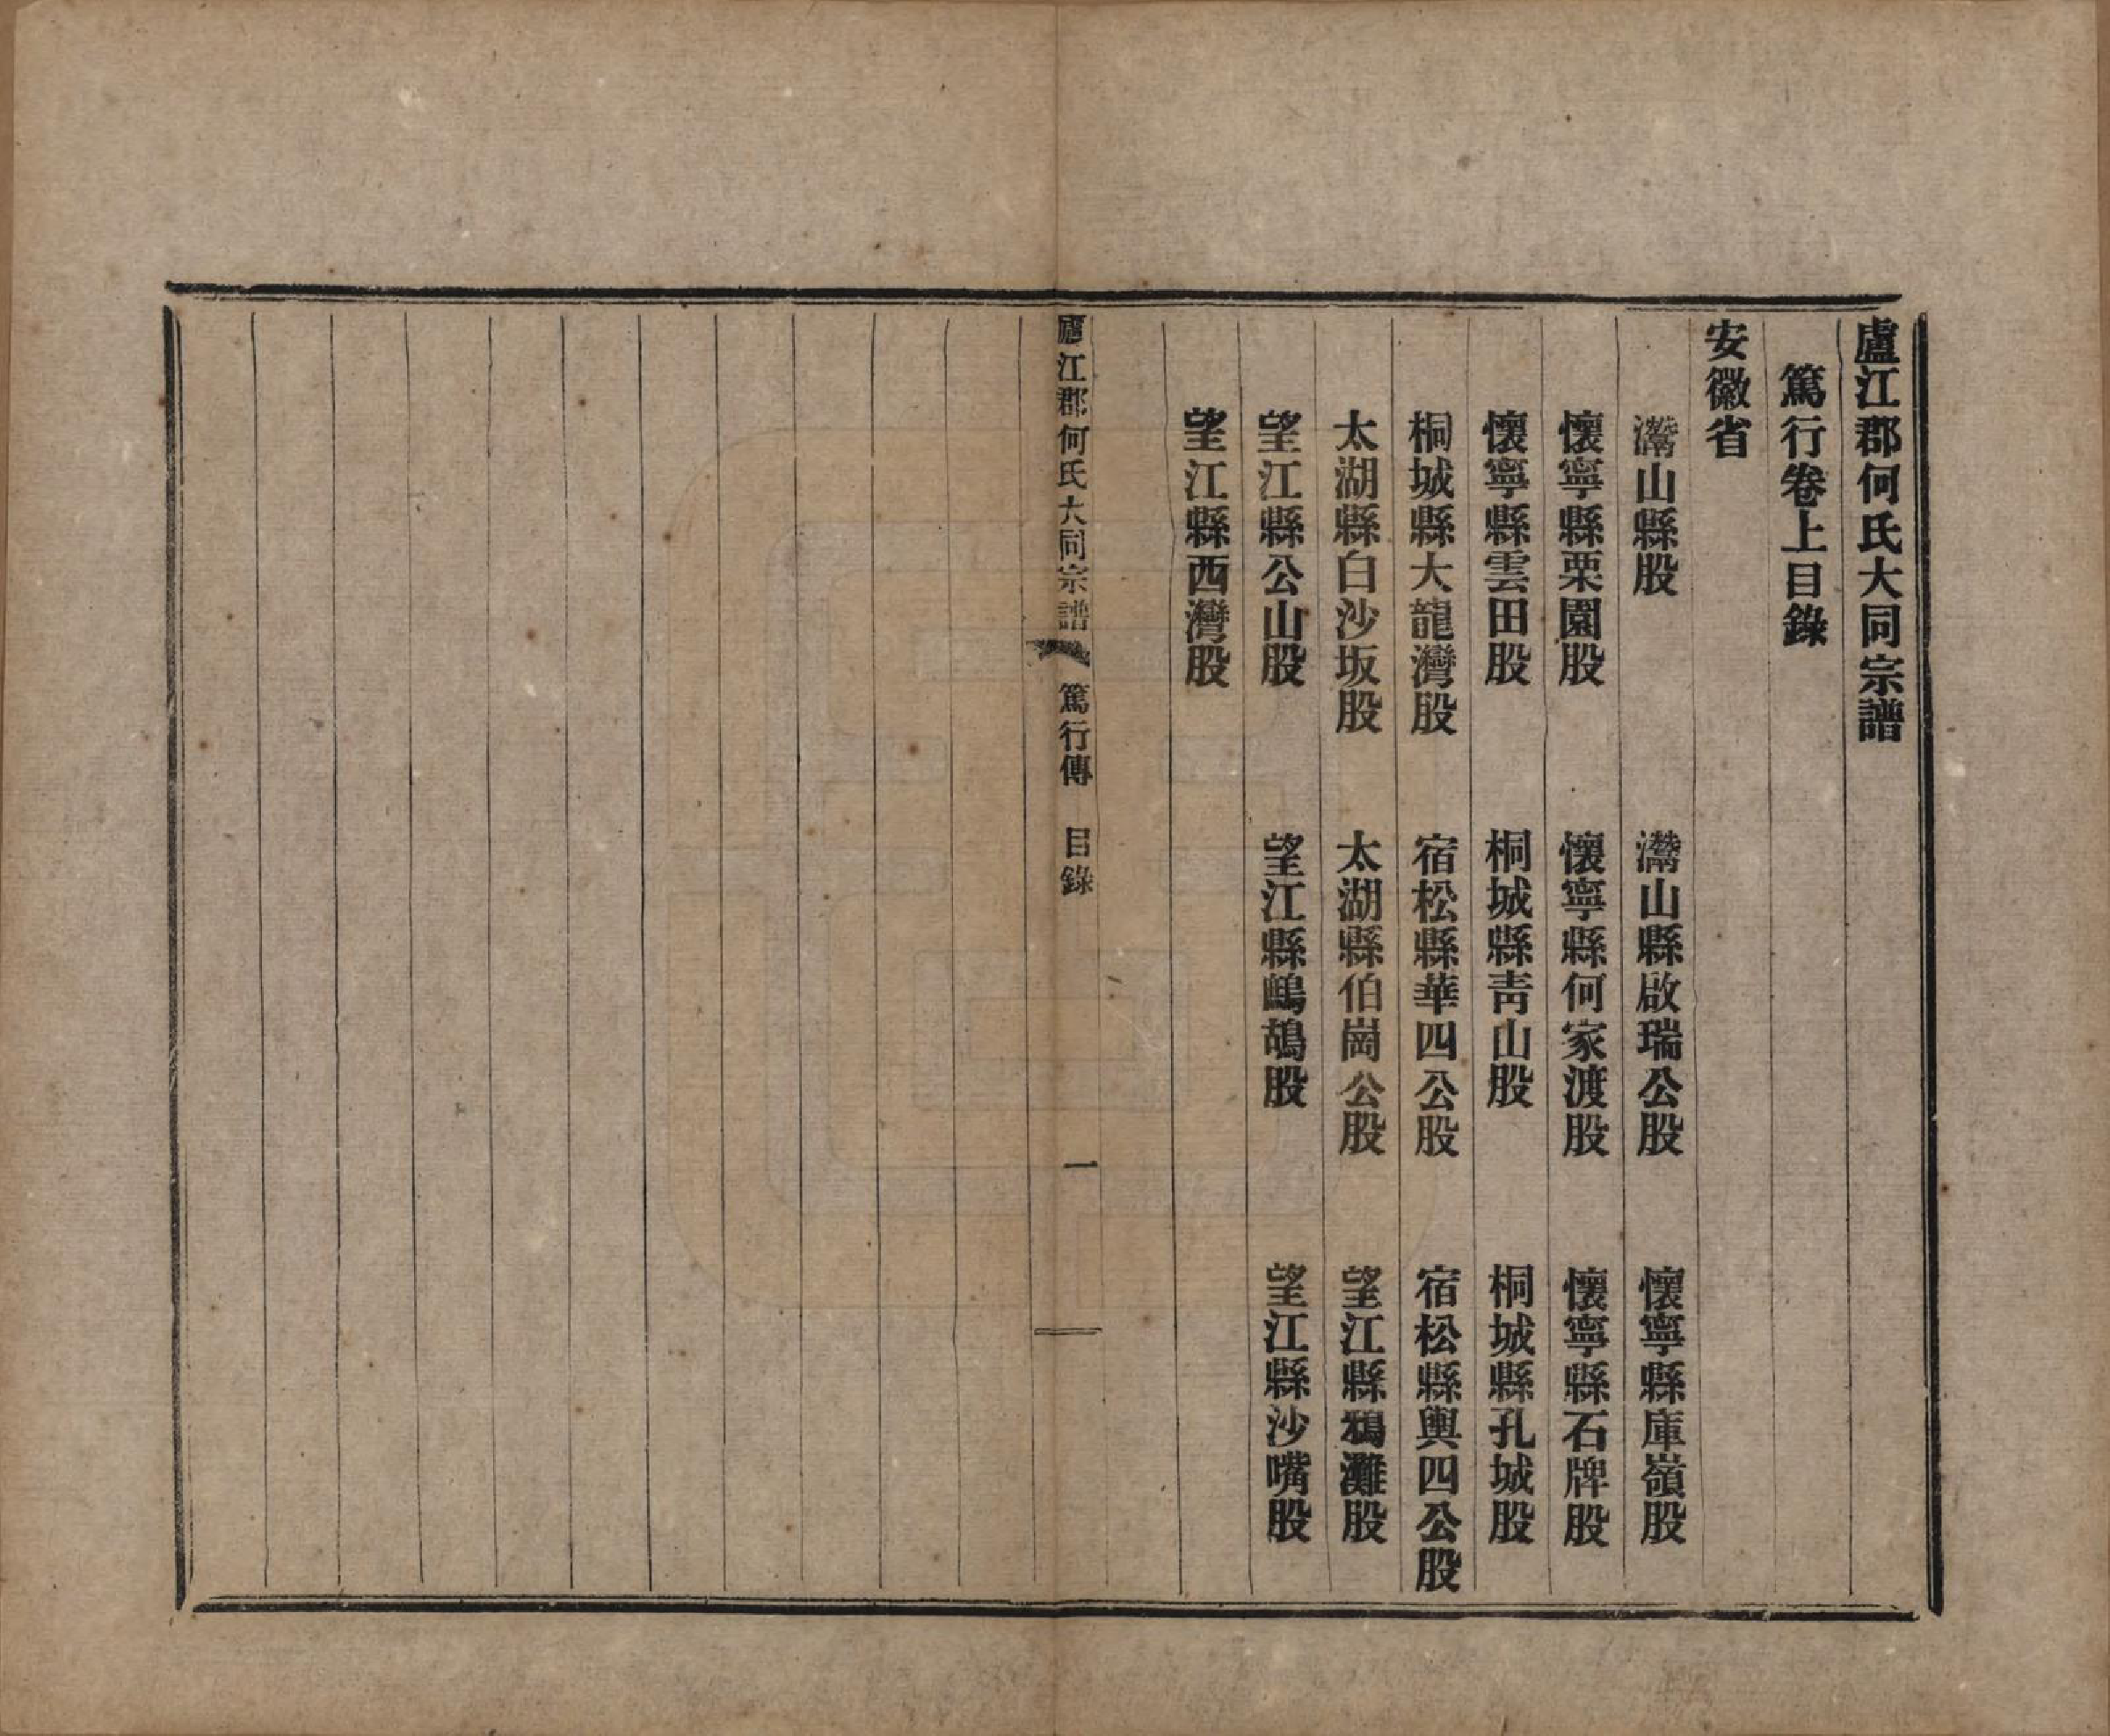 盧江郡何氏大同宗譜
篤行卷上目錄
安徽省
灊山縣股　灊山縣啟瑞公股　懷寧縣庫嶺股
懷寧縣栗園股　懷寧縣何家渡股　懷寧縣石牌股
懷寧縣雲田股　桐城縣青山股　桐城縣孔城股
桐城縣大龍灣股　宿松縣華四公股　宿松縣輿四公股
太湖縣白沙坂股　太湖縣伯崗公股　望江縣鴉灘股
望江縣公山股　望江縣鷓鴣股　望江縣沙嘴股
望江縣西灣股
廬江郡何氏大同宗譜　篤行傳　目錄　一